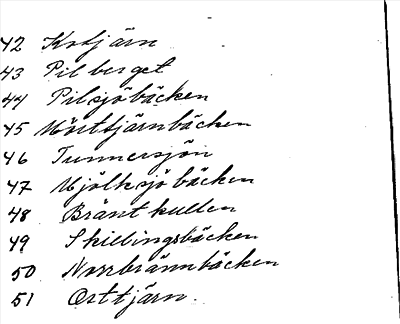 42 Kotjärn
43 Pilberget
44 Pilsjöbäcken
45 Mörttjärnbäcken
46 Tunnersjön
47 Mjölksjöbäcken
48 Bränt kullen
49 Skillingsbäcken
50 Norrbrännbäcken
51 Orttjärn.